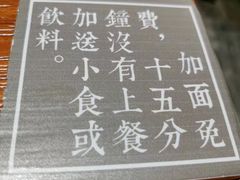 加面免
費，十五分
鐘沒有上餐
加送小食或
飲料。